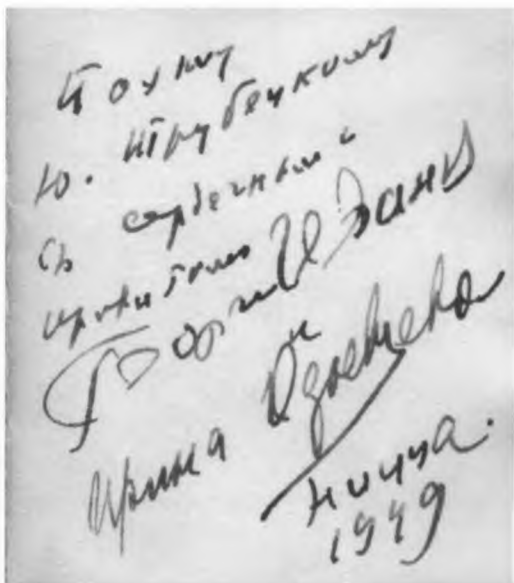 Поэту
Ю. Трубецкому
съ сердечным
приветом
Георгий Иванов
Ирина Одоевцева
Ницца.
1949